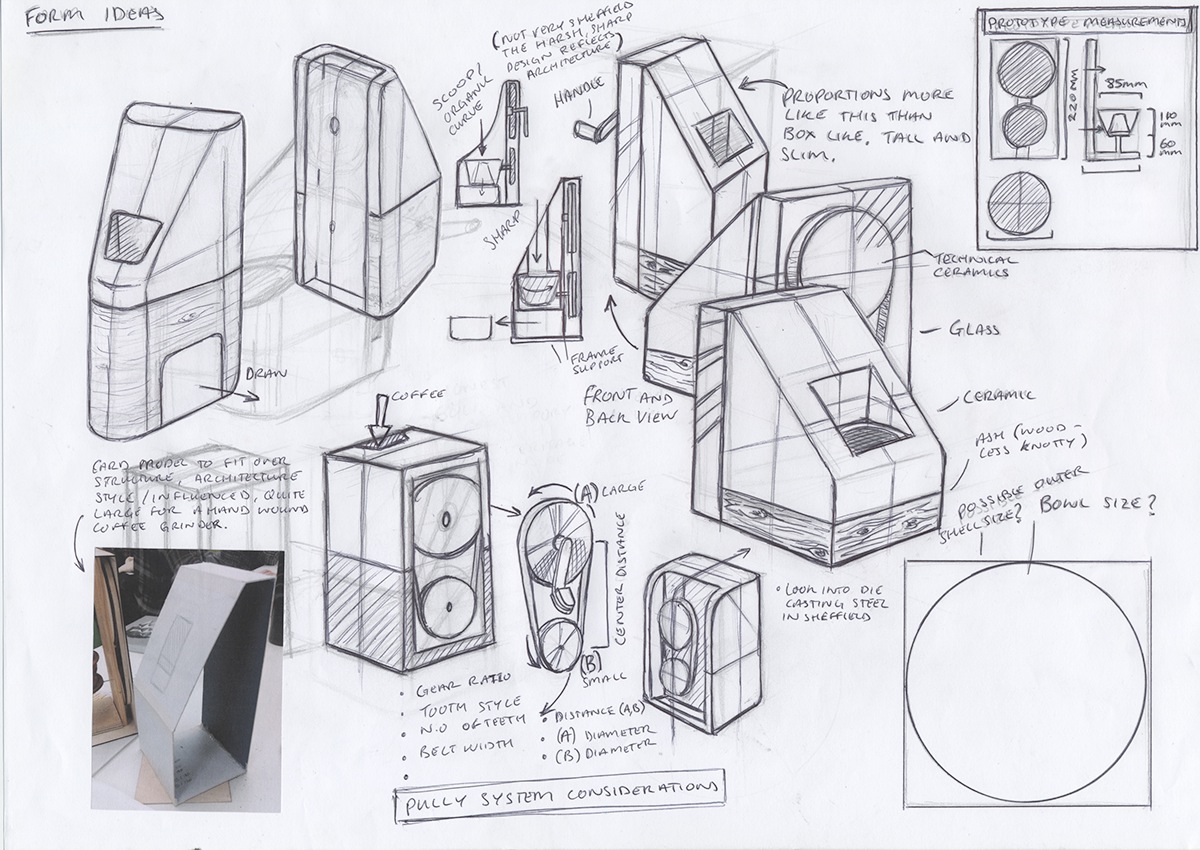 FORM IDEAS
SCOOP/
ORGANIC
CURVE
(NOT VERY SHEFFIELD
THE HARSH, SHARP
DESIGN REFLECTS
ARCHITECTURE)
HANDLE
SHARP
FRAME
SUPPORT
DRAW
PROPORTIONS MORE
LIKE THIS THAN
BOX LIKE, TALL AND
SLIM.
PROTOTYPE MEASUREMENTS
220MM
85mm
110
mm
60
mm
TECHNICAL
CERAMICS
GLASS
CERAMIC
ASH (WOOD -
LESS KNOTTY)
FRONT AND
BACK VIEW
COFFEE
CARD MODEL TO FIT OVER
STRUCTURE, ARCHITECTURE
STYLE/INFLUENCED, QUITE
LARGE FOR A HAND WOUND
COFFEE GRINDER.
(A) LARGE
CENTER DISTANCE
(B)
SMALL
• GEAR RATIO
• TOOTH STYLE
• N.O OF TEETH
• BELT WIDTH
•
• DISTANCE (A,B)
• (A) DIAMETER
• (B) DIAMETER
PULLY SYSTEM CONSIDERATIONS
• LOOK INTO DIE
CASTING STEEL
IN SHEFFIELD
POSSIBLE OUTER
SHELL SIZE?
BOWL SIZE?